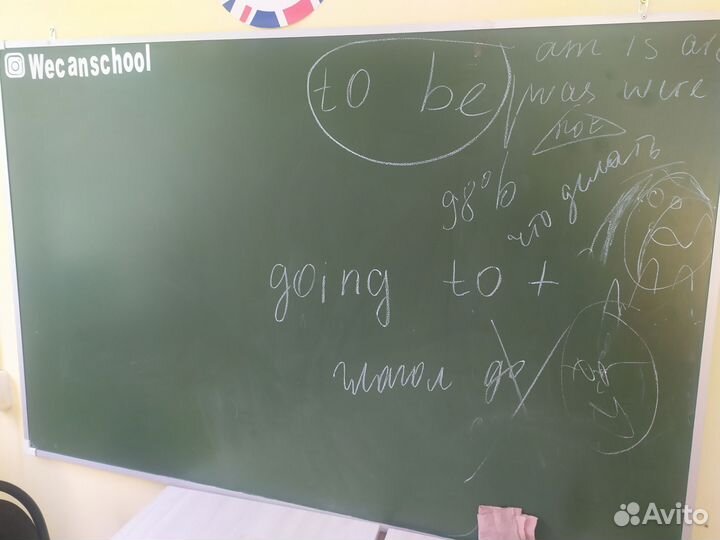 Wecanschool
to be am is are
was were
98%
что делать
going to +
глагол
Avito